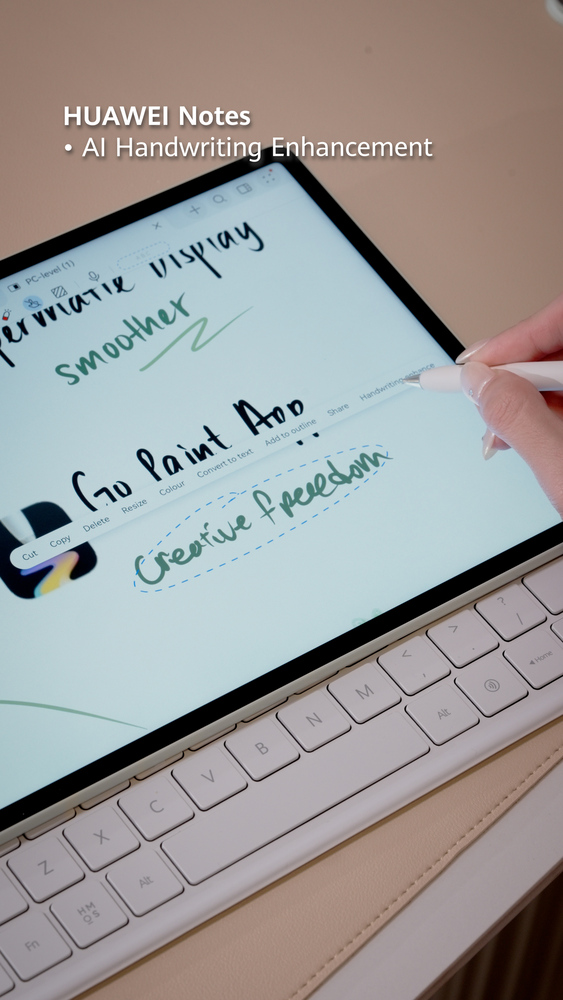 HUAWEI Notes
• AI Handwriting Enhancement
PC-level (1)
Display
smoother
Go Paint App
Cut Copy Delete Resize Colour Convert to text Add to outline Share Handwriting enhance
Creative freedom
< , > . ? /
Z X C V B N M
Fn HM OS Alt Alt Home